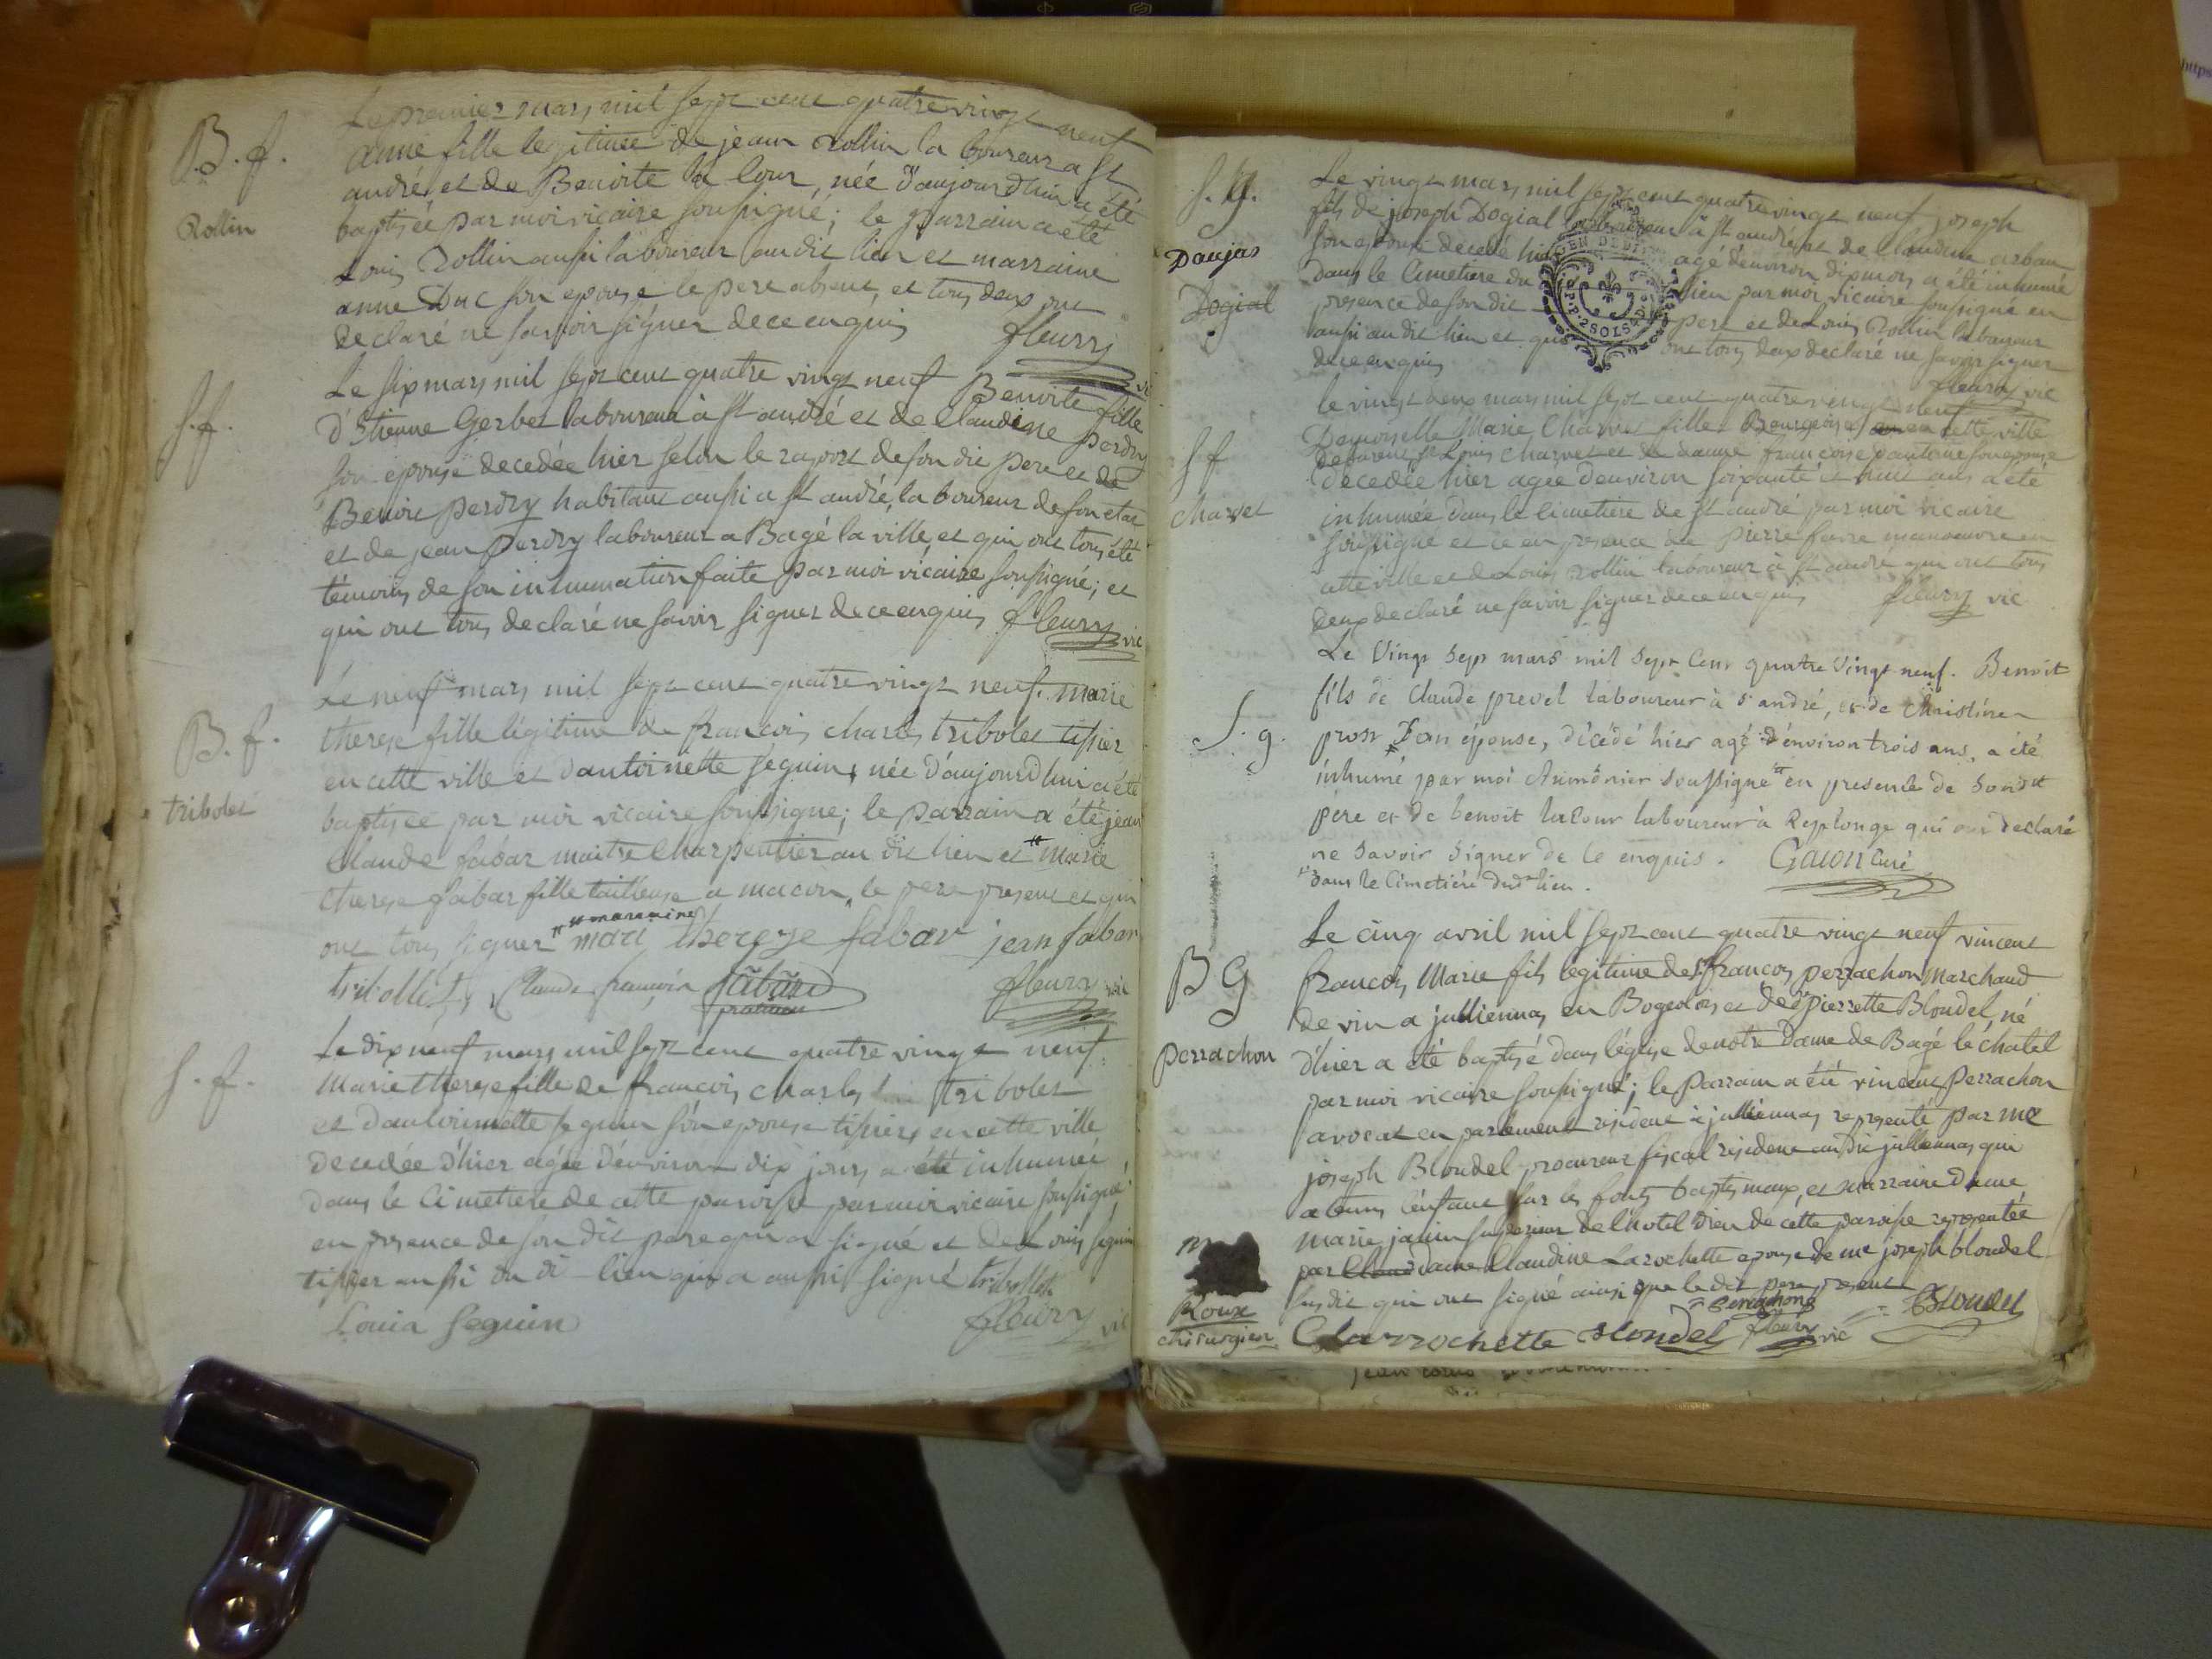 B. f.
Rollin
Le premier mars mil sept cent quatre vingt neuf
anne fille legitime de jean Rollin laboureur a St
andré, et de Benoite la Cour, née d'aujourd'hui a été
baptisée par moi vicaire soussigné; le parrain a été
Louis Rollin aussi laboureur au dit lieu et marraine
anne Duc son epouse le pere absent, et tous deux ont
declaré ne savoir signer de ce enquis fleury vic
S. f.
Le six mars mil sept cent quatre vingt neuf Benoite fille
d'Etienne Gerbet laboureur à St andré et de Claudine perdry
son epouse decedée hier selon le raport de son dit pere et de
Benoit perdry habitant aussi a St andré, laboureur de son etat
et de jean perdry laboureur a Bagé la ville, et qui ont tous été
témoins de son inhumation faite par moi vicaire soussigné; et
qui ont tous declaré ne savoir signer de ce enquis fleury vic
B. f.
tribolet
Le neuf mars mil sept cent quatre vingt neuf. marie
therese fille légitime de françois charles tribolet tissier
en cette ville et d'antoinette seguin, née d'aujourd'hui a été
baptisée par moi vicaire soussigné; le parrain a été jean
Claude fabar maitre charpentier au dit lieu et # marie
therese fabar fille tailleuse a macon, le pere present et qui
ont tous signer # marraine
mari therese fabar jean fabar
tribollet Claude françois fabard fleury vic
S. f.
Le dix neuf mars mil sept cent quatre vingt neuf
Marie therese fille de françois charles tribolet
et d'antoinnette seguin son epouse tissiers en cette ville
decedée d'hier agée d'environ dix jours a été inhumée
dans le cimetiere de cette paroisse par moi vicaire soussigné
en presence de son dit pere qui a signé et de Louis seguin
tissier aussi du di lieu qui a aussi signé tribollet
Louis seguin fleury vic
S. g.
Daujas
Dogial
Le vingt mars mil sept cent quatre vingt neuf joseph
fils de joseph Dogial laboureur à St andré et de Claudine
son epouse decedé hier agé d'environ dix mois a été inhumé
dans le Cimetiere du lieu par moi vicaire soussigné en
presence de son dit pere et de Louis Rollin laboureur
aussi au dit lieu et qui ont tous deux declaré ne savoir signer
de ce enquis fleury vic
GEN DE DI
2 SOLS
S f
charvet
le vingt deux mars mil sept cent quatre vingt neuf
Demoiselle Marie Charvet fille Bourgeoise en cette ville
Louis charvet et de dame françoise son epouse
decedée hier agée d'environ soixante et huit ans a été
inhumée dans le cimetiere de St andré par moi vicaire
soussigné et ce en presence de pierre favre manoeuvre en
cette ville et de Louis rollin laboureur à St andré qui ont tous
deux declaré ne savoir signer de ce enquis fleury vic
S. g.
Le Vingt Sept mars mil Sept Cent quatre Vingt neuf. Benoit
fils de Claude prevel laboureur à St andré, et de Christine
prost Son épouse, décédé hier agé d'environ trois ans, a été
inhumé par moi Aumônier soussigné # en presence de Sondt
père et de benoit laCour laboureur à Replonge qui ont déclaré
ne Savoir Signer de Ce enquis. Gacon Curé
# dans le Cimetière dudt lieu.
B G
perrachon
Le cinq avril mil sept cent quatre vingt neuf vincent
françois Marie fils legitime de Sr françois perrachon Marchand
de vin a jullienas en Bogeolois et de de pierrette Blondel, né
d'hier a été baptisé dans l'église de notre Dame de Bagé le châtel
par moi vicaire soussigné; le parrain a été vincent perrachon
avocat en parlement résident à jullienas representé par me
joseph Blondel procureur fiscal résident au dit jullienas qui
a tenu l'enfant sur les fonts baptismaux, et marraine Dame
marie janin superieure de l'hotel Dieu de cette paroisse representée
par Claud dame Claudine Larochette epouse de me joseph blondel
susdit qui ont signé ainsi que le dit pere present
perrachon Blondel
C Larrochette Blondel fleury vic
Roux
chirurgien